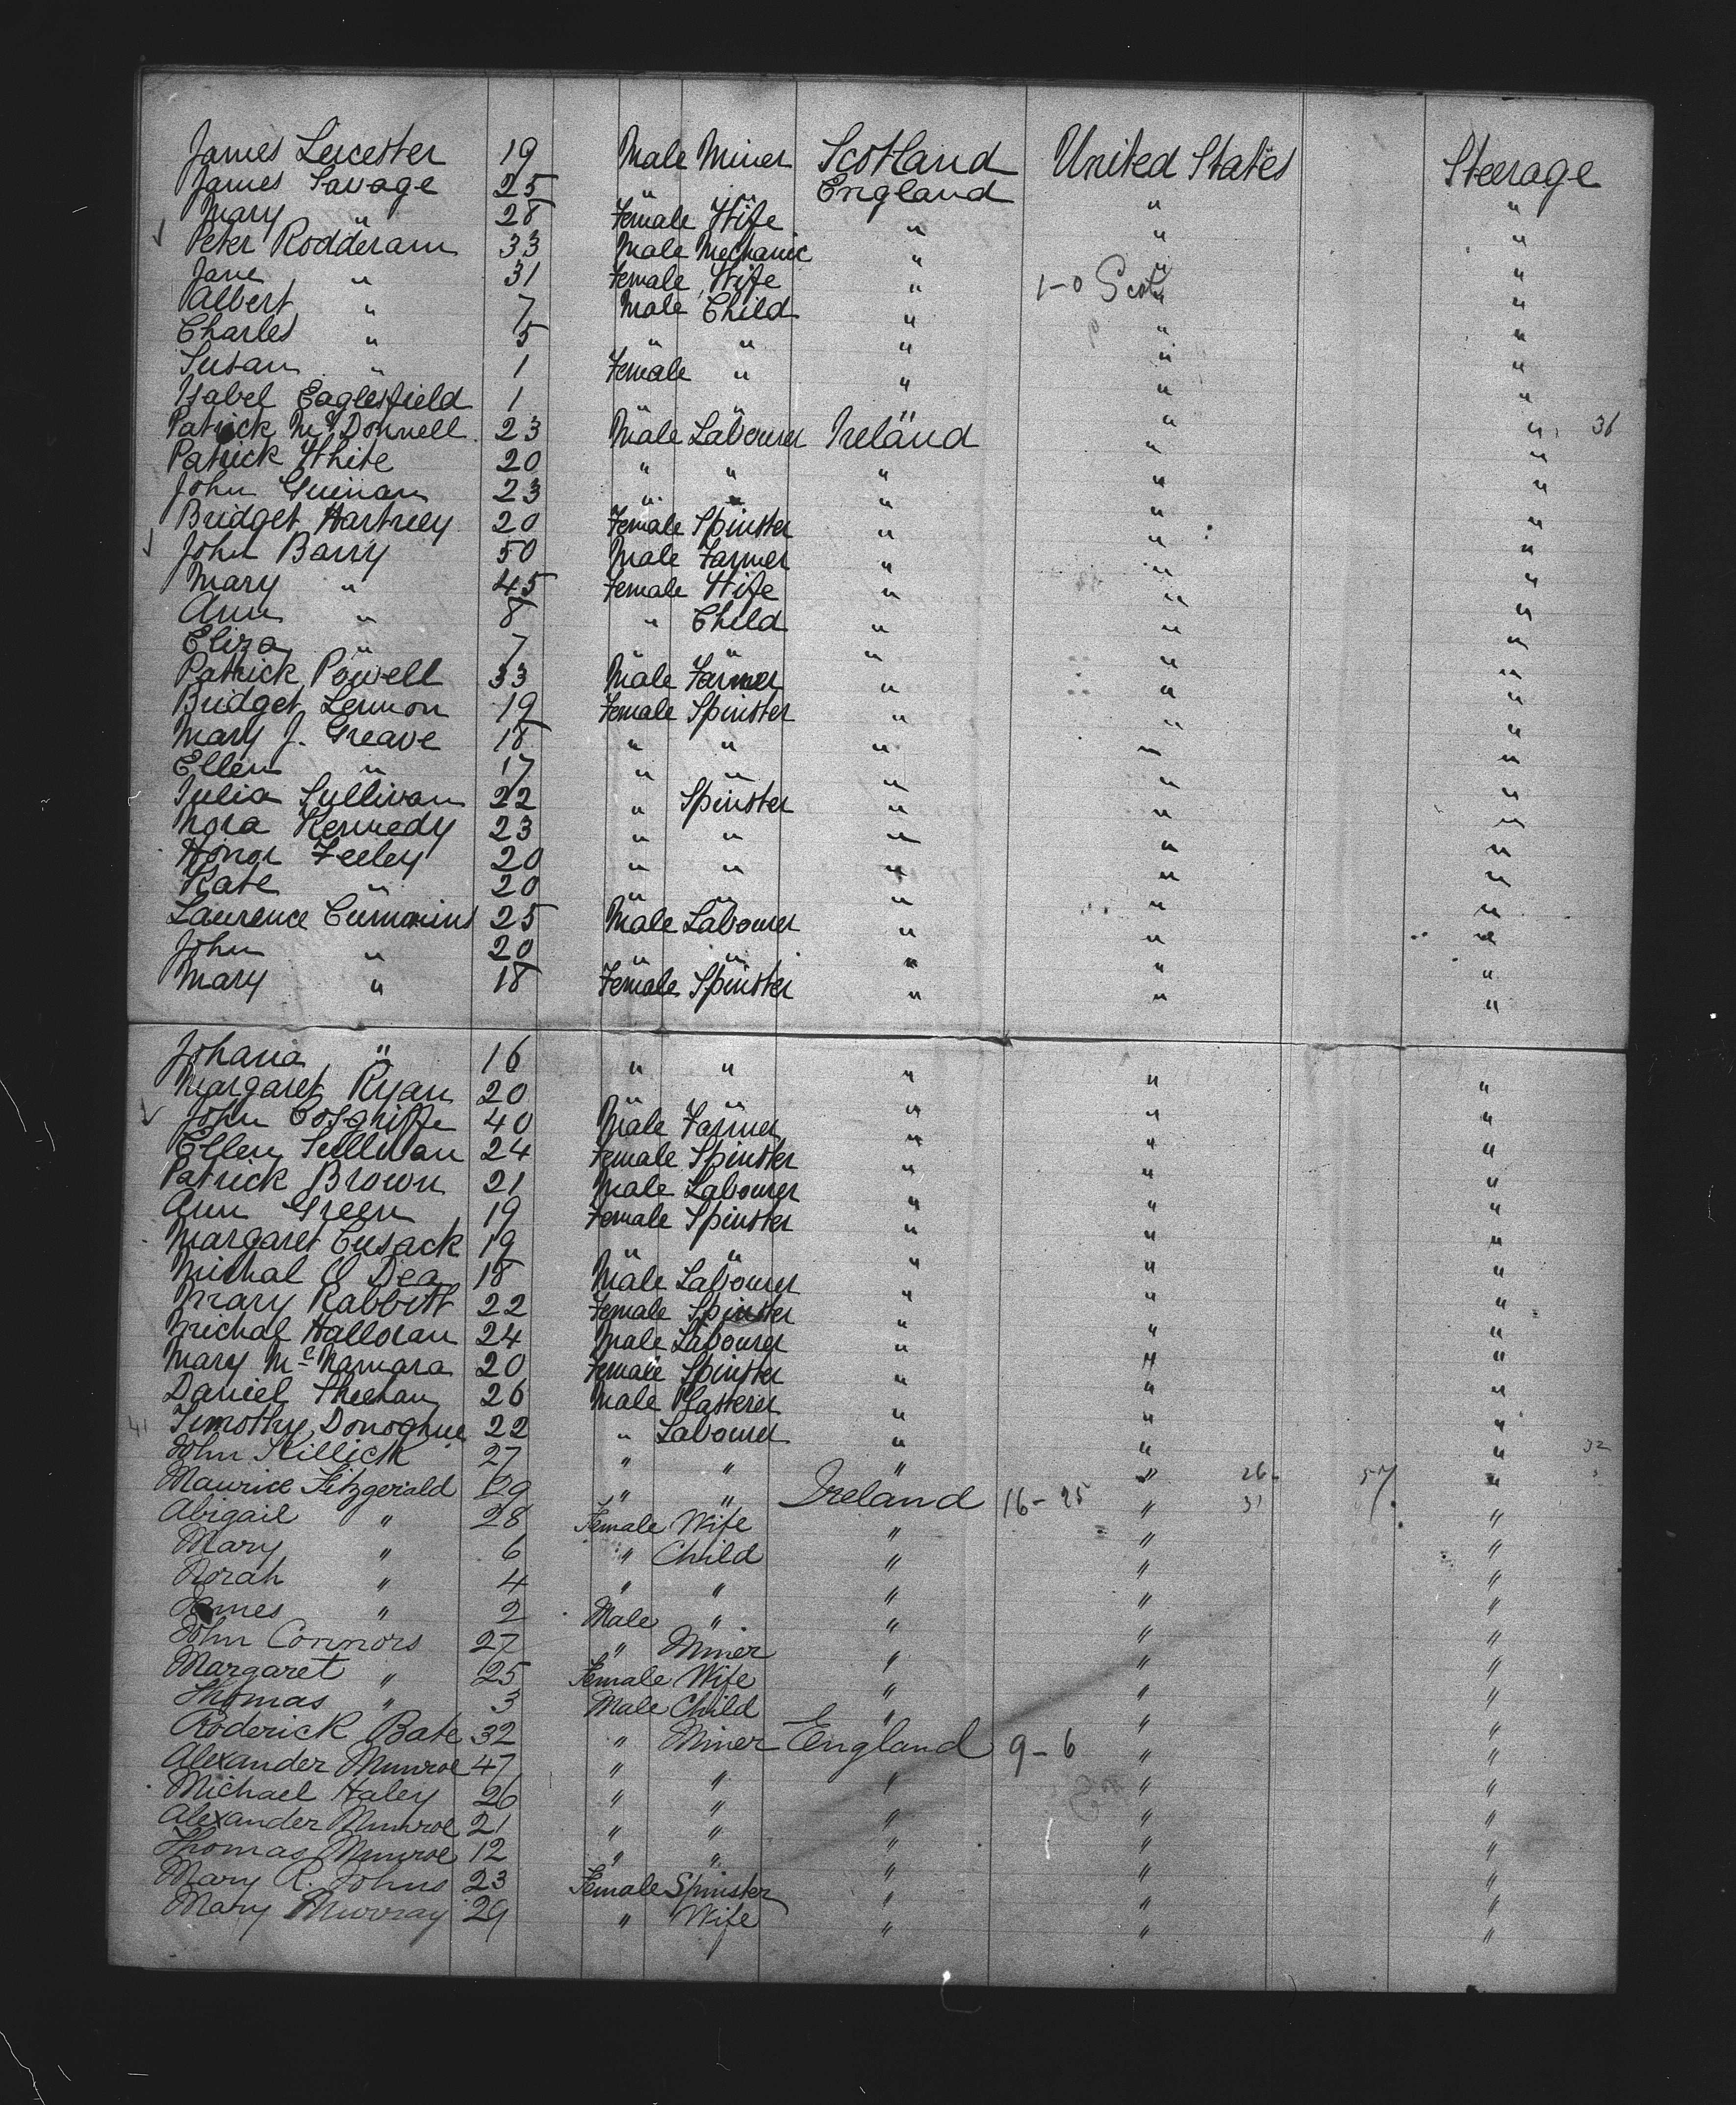 James Leicester 19 Male Miner Scotland United States Steerage
James Savage 25 " " England " "
Mary " 28 Female Wife " " "
Peter Rodderam 33 Male Mechanic " " "
Jane " 31 Female Wife " 1-0 Scot " "
Albert " 7 Male Child " " "
Charles " 5 " " " " "
Susan " 1 Female " " " "
Isabel Eaglesfield 1 " " " " "
Patrick McDonnell 23 Male Labourer Ireland " " 36
Patrick White 20 " " " " "
John Guinan 23 " " " " "
Bridget Hartney 20 Female Spinster " " "
John Barry 50 Male Farmer " " "
Mary " 45 Female Wife " " "
Ann " 8 " Child " " "
Eliza " 7 " " " " "
Patrick Powell 33 Male Farmer " " "
Bridget Lennon 19 Female Spinster " " "
Mary J. Greave 18 " " " " "
Ellen " 17 " " " " "
Julia Sullivan 22 " Spinster " " "
Nora Kennedy 23 " " " " "
Honor Feeley 20 " " " " "
Kate " 20 " " " " "
Laurence Cummins 25 Male Labourer " " "
John " 20 " " " " "
Mary " 18 Female Spinster " " "
Johana " 16 " " " " "
Margaret Ryan 20 " " " " "
John Cosgriffe 40 Male Farmer " " "
Ellen Sullivan 24 Female Spinster " " "
Patrick Brown 21 Male Labourer " " "
Ann Green 19 Female Spinster " " "
Margaret Cusack 19 " " " " "
Michal O Dea 18 Male Labourer " " "
Mary Rabbitt 22 Female Spinster " " "
Michal Halloran 24 Male Labourer " " "
Mary McNamara 20 Female Spinster " " "
Daniel Sheehan 26 Male Plasterer " " "
41 Timothy Donoghue 22 " Labourer " " "
John Killick 27 " " " " " 32
Maurice Fitzgerald 29 " " Ireland 16-25 " 26 57 "
Abigail " 28 Female Wife " " 31 "
Mary " 6 " Child " " "
Norah " 4 " " " " "
James " 2 Male " " " "
John Connors 27 " Miner " " "
Margaret " 25 Female Wife " " "
Thomas " 3 Male Child " " "
Roderick Bate 32 " Miner England 9-6 " "
Alexander Munroe 47 " " " " "
Michael Haley 26 " " " " "
Alexander Munroe 21 " " " " "
Thomas Munroe 12 " " " " "
Mary R. Johns 23 Female Spinster " " "
Mary Murray 29 " Wife " " "